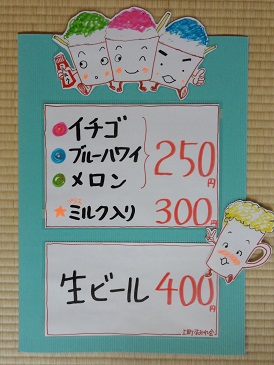 イチゴ
ブルーハワイ
メロン
250円
ミルク入り 300円
生ビール 400円